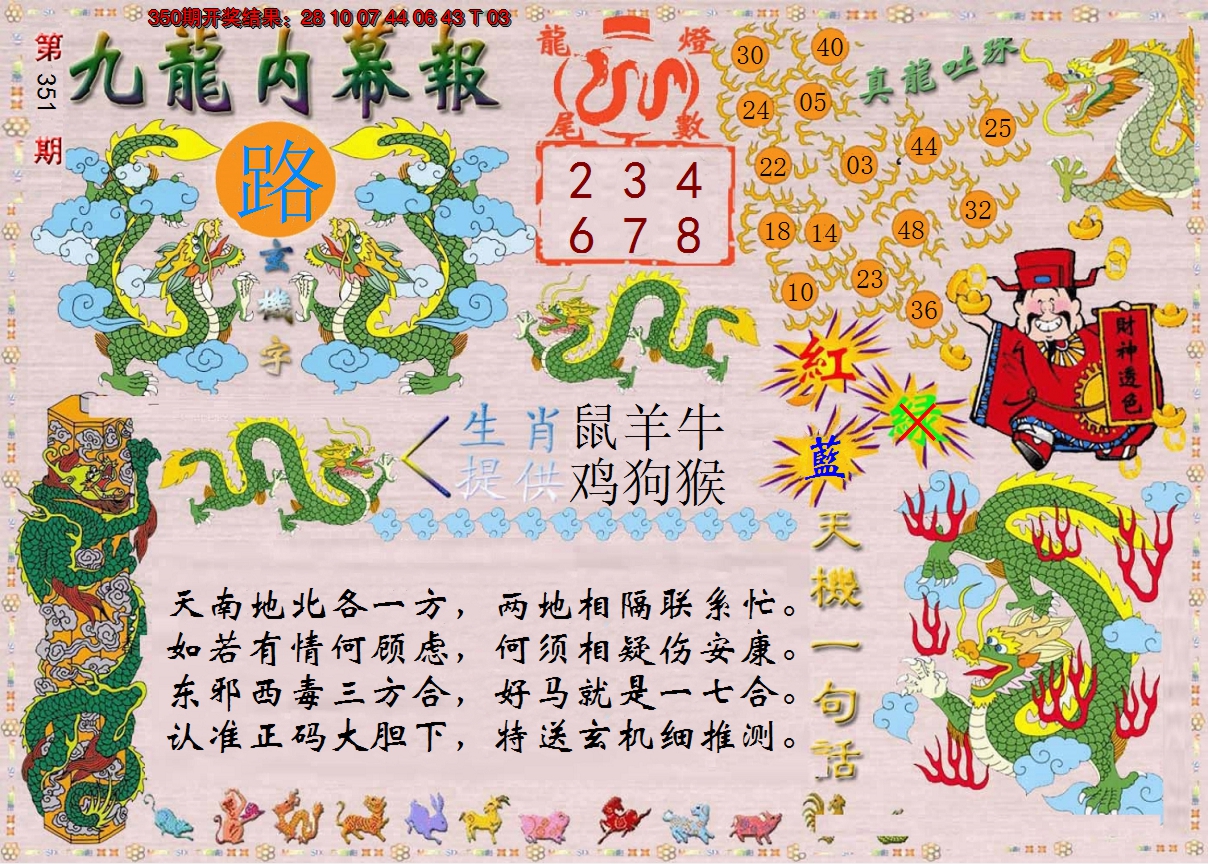 350期开奖结果：28 10 07 44 06 43 T 03
第351期
九龍内幕報
路
玄機字
龍燈尾數
2 3 4
6 7 8
真龍吐珠
30 40
24 05
22 03 44 25
18 14 48 32
10 23 36
財神透色
紅
绿
藍
生肖提供
鼠羊牛
鸡狗猴
天機一句話
天南地北各一方，两地相隔联系忙。
如若有情何顾虑，何须相疑伤安康。
东邪西毒三方合，好马就是一七合。
认准正码大胆下，特送玄机细推测。